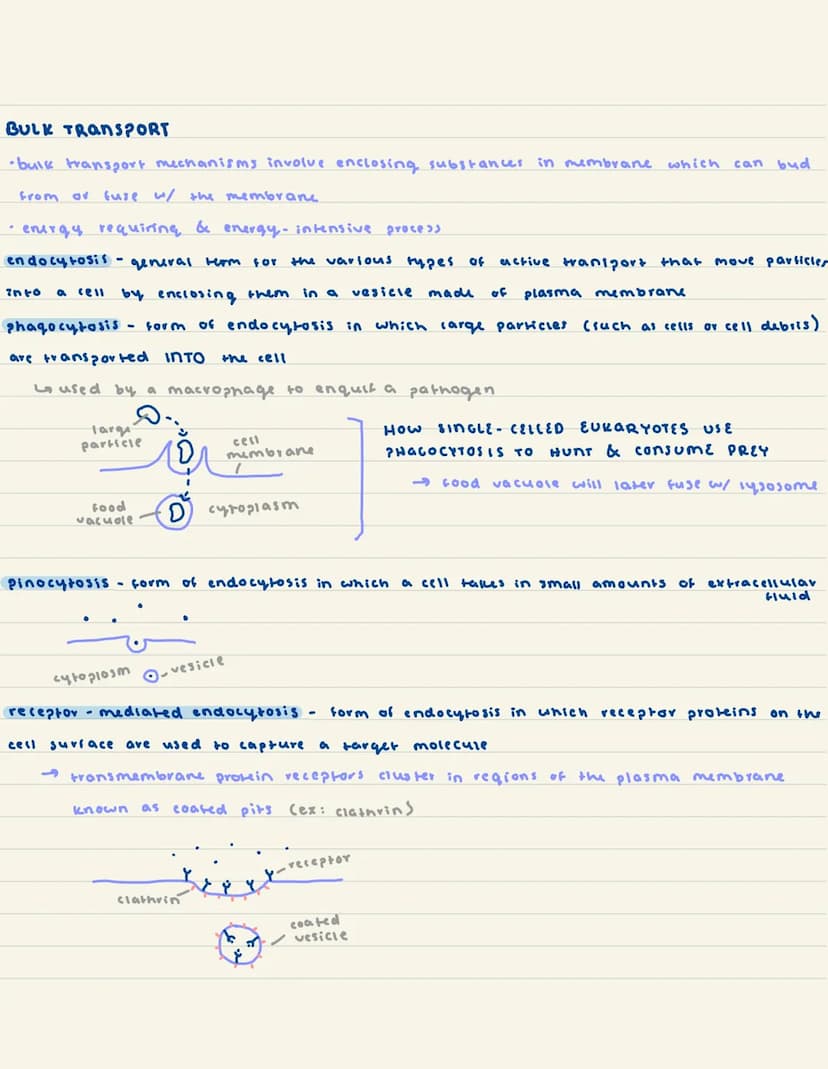 BULK TRANSPORT
• bulk transport mechanisms involve enclosing substances in membrane which can bud
from or fuse w/ the membrane
• energy requiring & energy-intensive process
endocytosis - general term for the various types of active transport that move particles
into a cell by enclosing them in a vesicle made of plasma membrane
phagocytosis - form of endocytosis in which large particles (such as cells or cell debris)
are transported INTO the cell
↳ used by a macrophage to engulf a pathogen
large
particle
cell
membrane
food
vacuole
cytoplasm
HOW SINGLE-CELLED EUKARYOTES USE
PHAGOCYTOSIS TO HUNT & CONSUME PREY
→ food vacuole will later fuse w/ lysosome
pinocytosis - form of endocytosis in which a cell takes in small amounts of extracellular
fluid
cytoplasm
vesicle
receptor-mediated endocytosis - form of endocytosis in which receptor proteins on the
cell surface are used to capture a target molecule
→ transmembrane protein receptors cluster in regions of the plasma membrane
known as coated pits (ex: clathrin)
receptor
clathrin
coated
vesicle